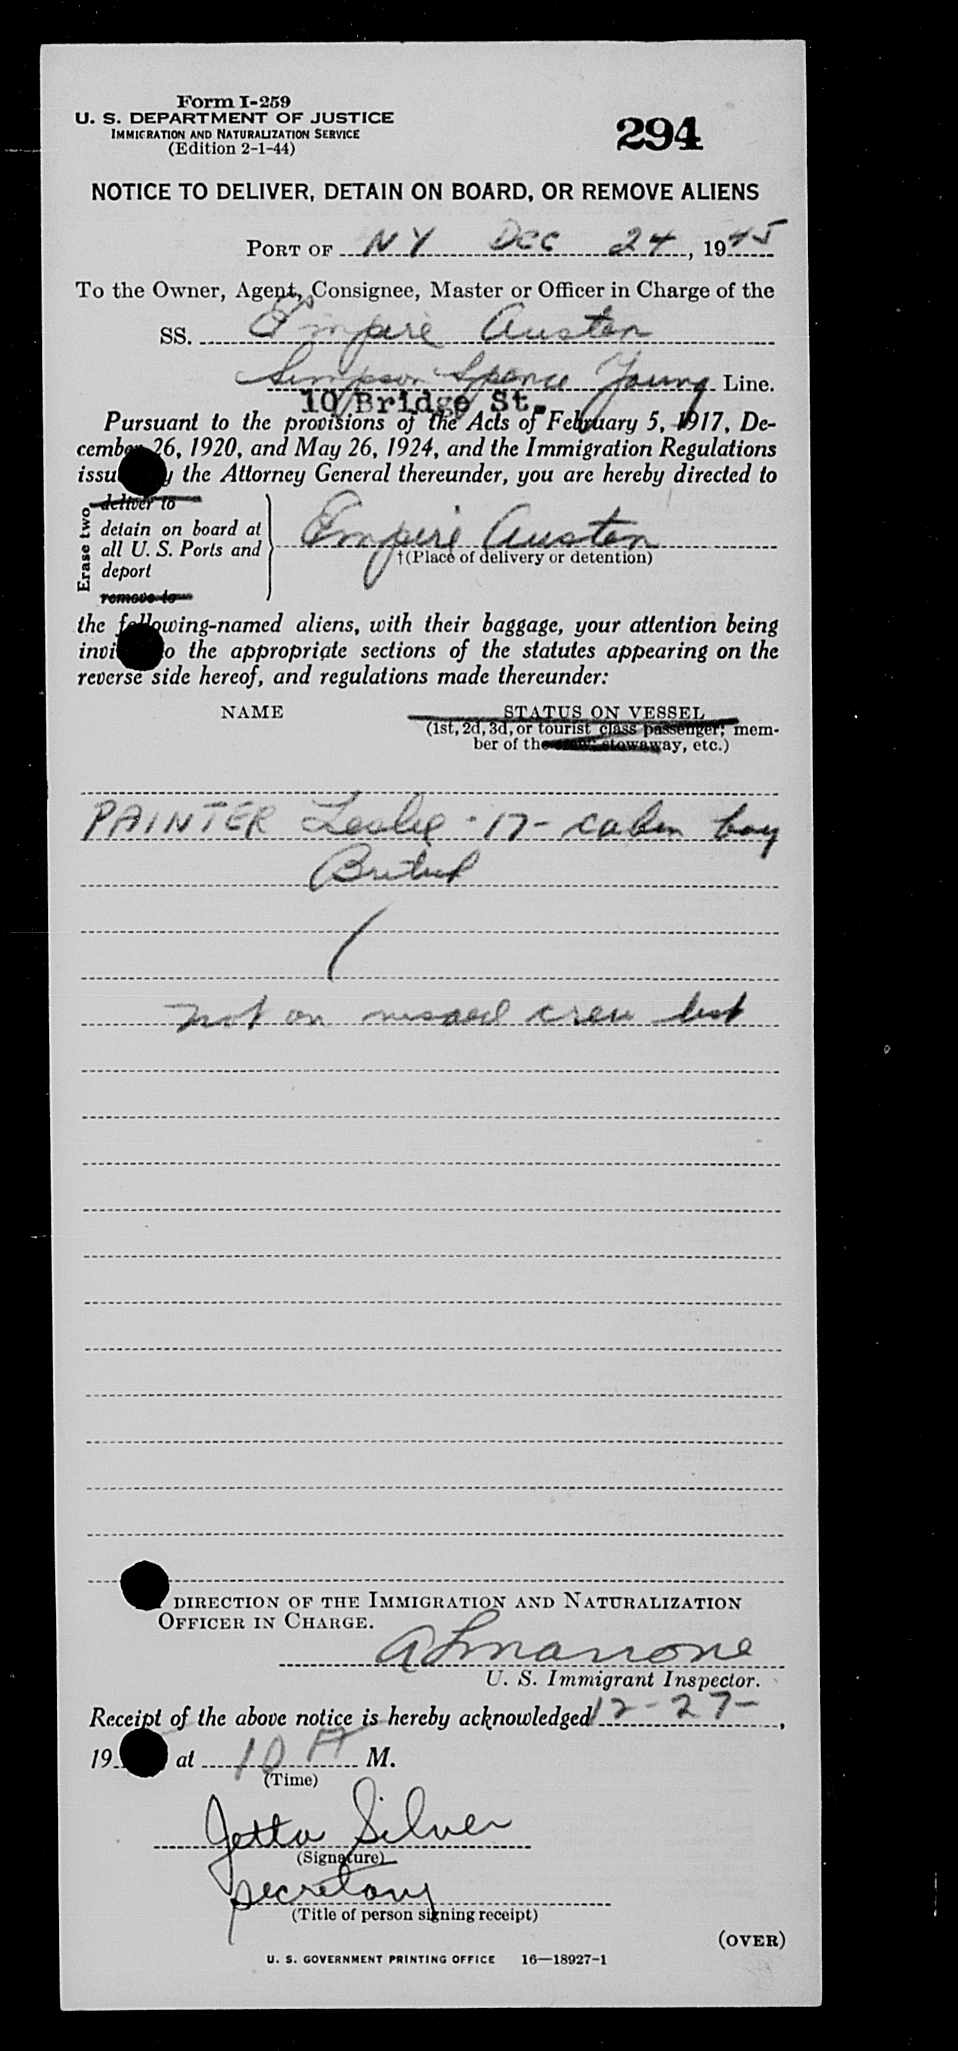 Form I-259
U. S. DEPARTMENT OF JUSTICE
IMMIGRATION AND NATURALIZATION SERVICE
(Edition 2-1-44)
294
NOTICE TO DELIVER, DETAIN ON BOARD, OR REMOVE ALIENS
PORT OF NY Dec 24, 1945
To the Owner, Agent, Consignee, Master or Officer in Charge of the
SS. Empire Austen
Simpson Spence Young Line.
10 Bridge St.
Pursuant to the provisions of the Acts of February 5, 1917, De-
cember 26, 1920, and May 26, 1924, and the Immigration Regulations
issu y the Attorney General thereunder, you are hereby directed to
Erase two
deliver to
detain on board at
all U. S. Ports and
deport
remove to
Empire Austen
†(Place of delivery or detention)
the following-named aliens, with their baggage, your attention being
invi o the appropriate sections of the statutes appearing on the
reverse side hereof, and regulations made thereunder:
NAME STATUS ON VESSEL
(1st, 2d, 3d, or tourist class passenger; mem-
ber of the crew, stowaway, etc.)
PAINTER Leslie - 17 - cabin boy
British
not on visaed crew list
DIRECTION OF THE IMMIGRATION AND NATURALIZATION
OFFICER IN CHARGE.
U. S. Immigrant Inspector.
Receipt of the above notice is hereby acknowledged 12-27-,
19 at 10 A M.
(Time)
Jetta Silver
(Signature)
Secretary
(Title of person signing receipt)
(OVER)
U. S. GOVERNMENT PRINTING OFFICE 16—18927-1